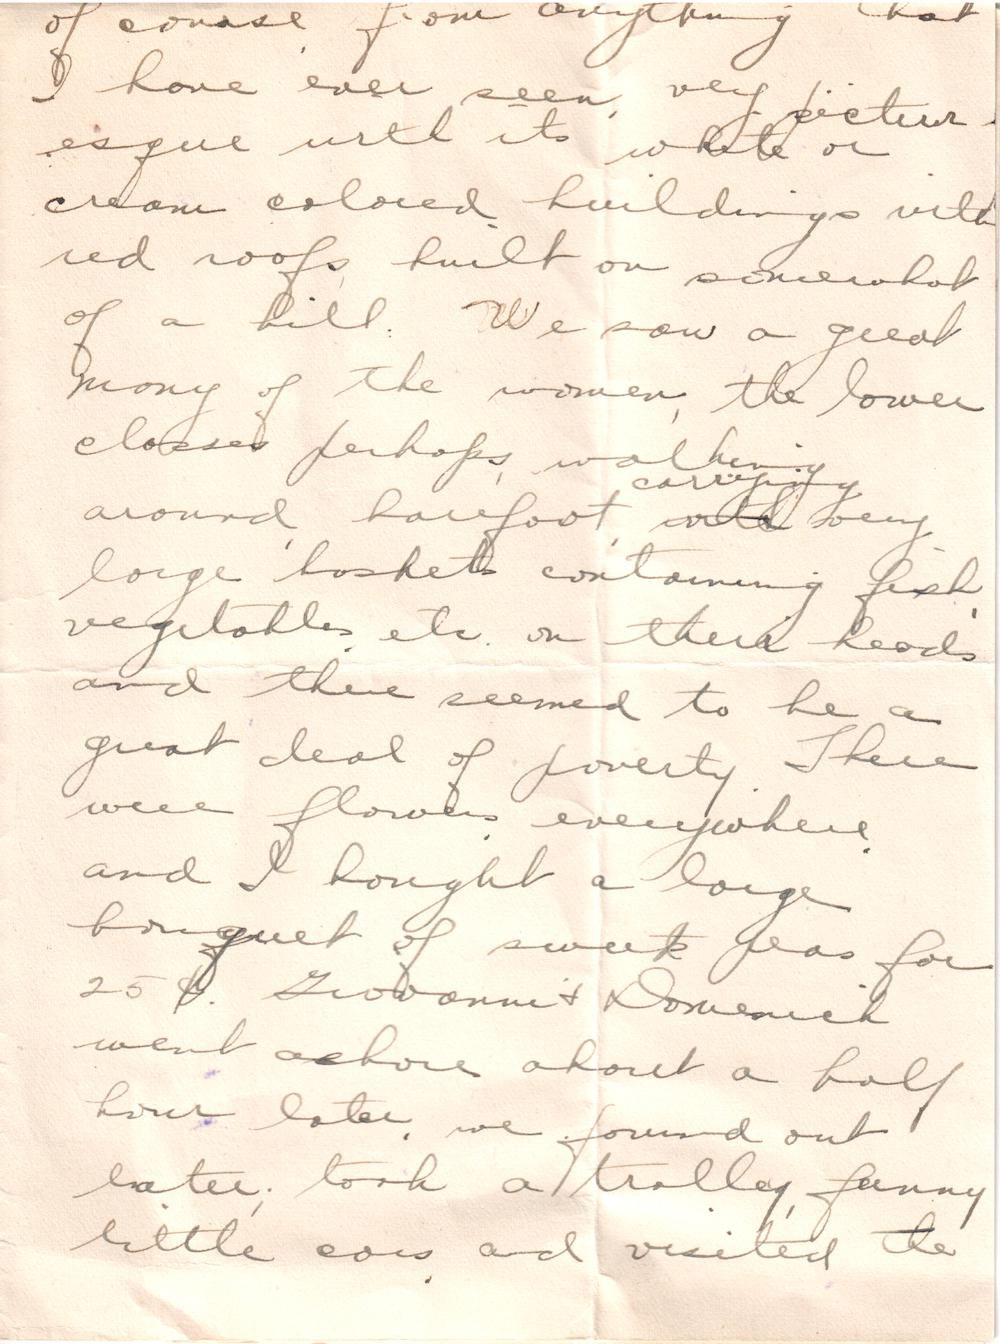 of course from anything that
I have ever seen, very pictur-
esque with its white or
cream colored buildings with
red roofs, built on somewhat
of a hill. We saw a great
many of the women, the lower
classes perhaps, walking
carrying
around, barefoot, with very
large baskets containing fish,
vegetables, etc. on their heads
and there seemed to be a
great deal of poverty. There
were flowers everywhere
and I bought a large
bouquet of sweet peas for
25¢. Giovanni & Domenick
went ashore about a half
hour later, we found out
later, took a trolley, funny
little cars and visited the